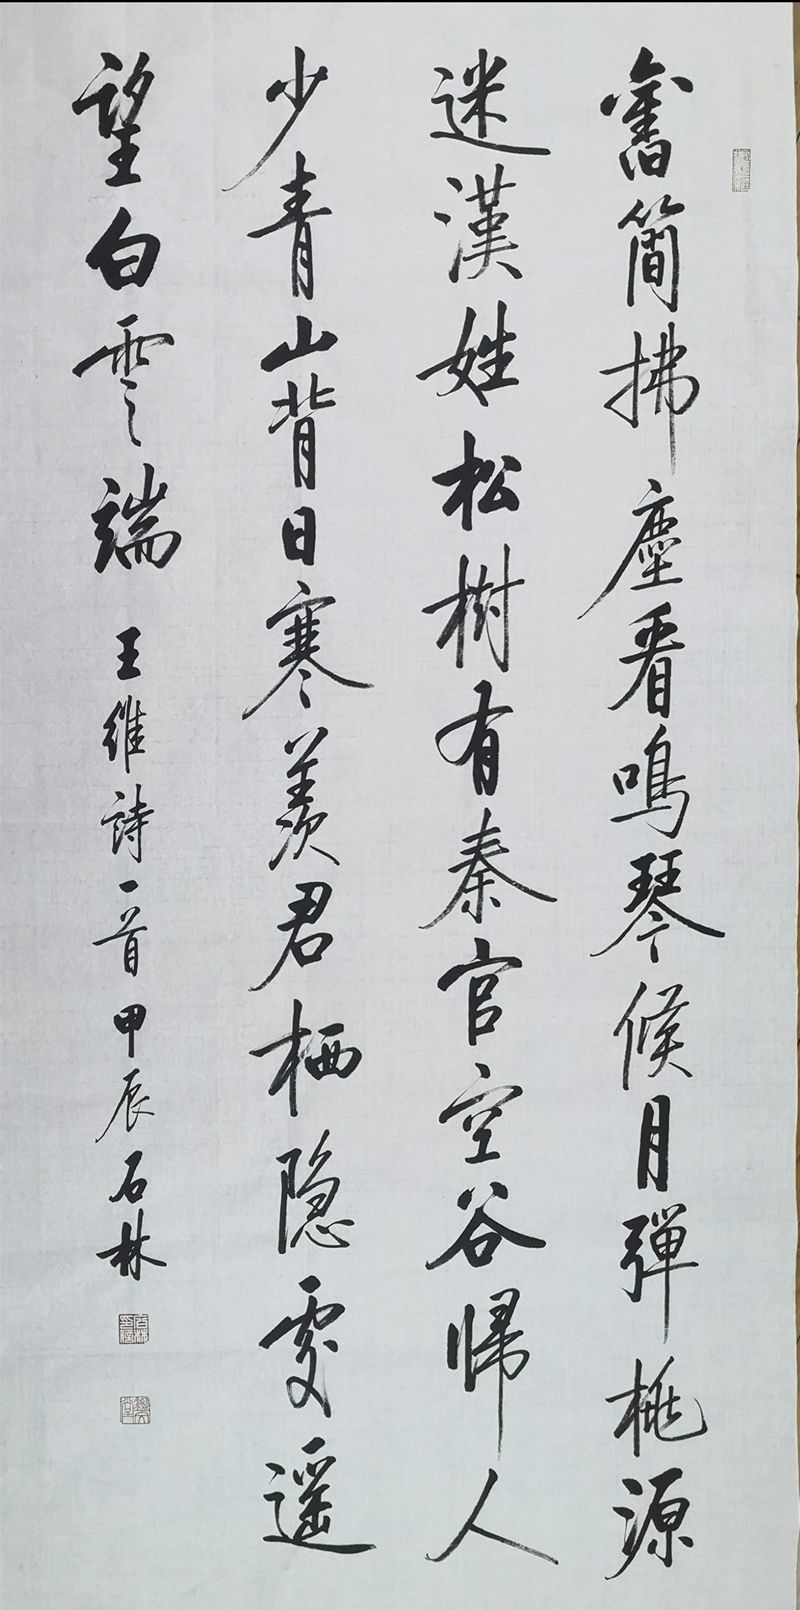 舊簡拂塵看鳴琴候月彈桃源
迷漢姓松樹有秦官空谷歸人
少青山背日寒羨君栖隐處遥
望白雲端
王維詩一首甲辰石林